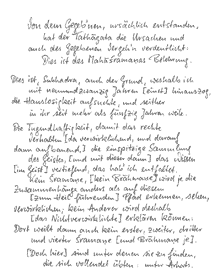 Von dem Gegebnen, ursächlich entstanden,
hat der Tathāgata die Ursachen und
auch des Gegebenen Vergehn verdeutlicht:
Dies ist des Mahāsramanas Belehrung.
Dies ist, Subhadra, auch der Grund, weshalb ich
mit neunundzwanzig Jahren [einst] hinauszog,
die Hauslosigkeit aufsuchte, und seither
in ihr seit mehr als fünfzig Jahren weile.
Die Tugendhaftigkeit, damit das rechte
Verhalten [da verwirklichend, und darauf
dann aufbauend,] die einspitzige Sammlung
des Geistes, [und mit dieser dann] das Wissen
[im Geist] verfestigt, das hab' ich entfaltet.
Kein Sramane, [kein Brāhmane] wird je die
Zusammenhänge anders als auf diesen
[zum Heil führenden] Pfad erkennen, sehen,
verwirklichen, kein Anderer wird deshalb
[das Nichtverwirklichte] erklären können.
Dort weilt dann auch kein erster, zweiter, dritter
und vierter Sramane [und Brāhmane je].
[Doch hier] sind unter denen sie zu finden,
die sich vollendet üben: